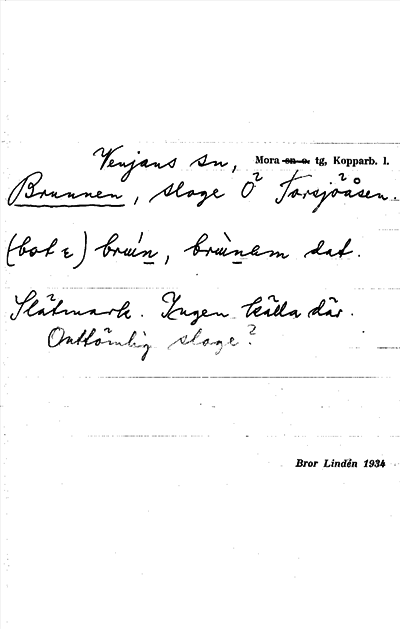 Venjans sn, Mora sn o. tg, Kopparb. l.
Brunnen, sloge Ö Torsjöåsen.
(bot ε) brùn̲, brùn̲em dat.
Slåtmark. Ingen källa där.
Ontkömlig sloge?
Bror Lindén 1934